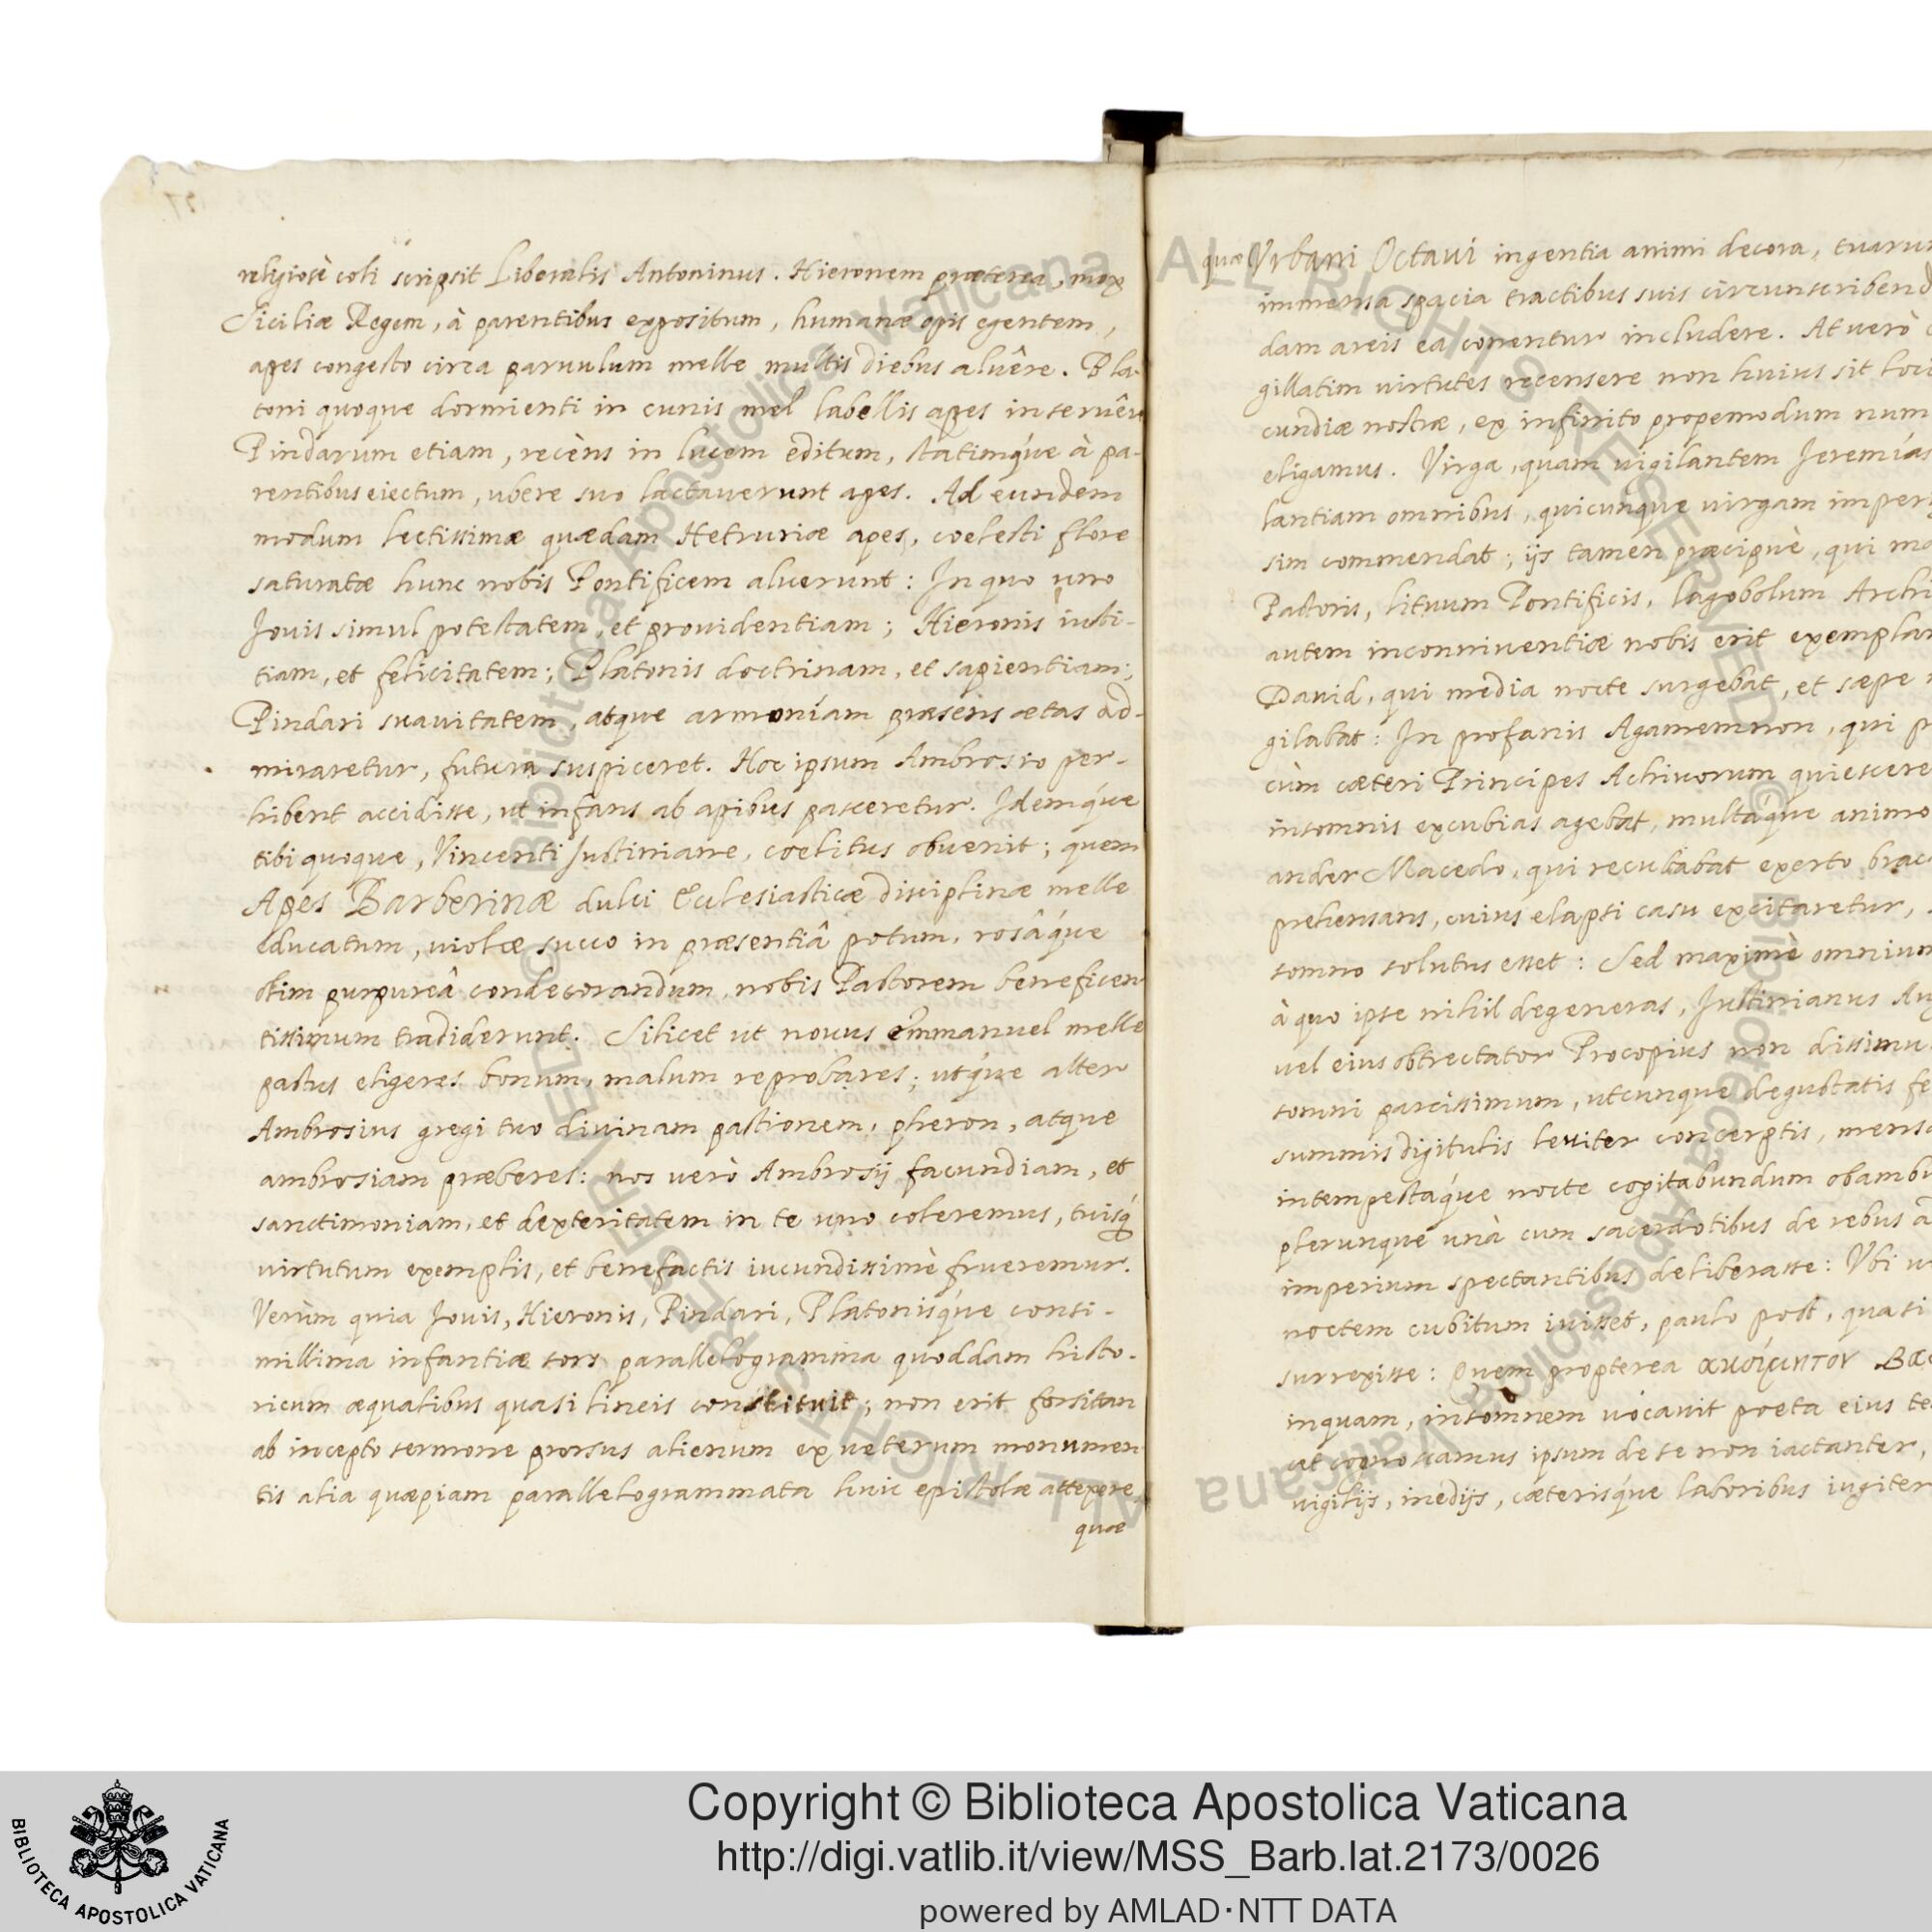 religiosè coli scripsit Liberalis Antoninus. Hieronem præterea, mox
Siciliæ Regem, à parentibus expositum, humanæ opis egentem,
apes congesto circa paruulum melle multis diebus aluêre. Pla-
toni quoque dormienti in cunis mel labellis apes inseruêre
Pindarum etiam, recèns in lucem editum, statimq́ue à pa-
rentibus eiectum, vbere suo lactauerunt apes. Ad eundem
modum lectissimæ quædam Hetruriæ apes, coelesti flore
saturatæ hunc nobis Pontificem aluerunt: In quo uno
Jouis simul potestatem, et prouidentiam; Hieronis iusti-
tiam, et felicitatem; Platonis doctrinam, et sapientiam;
Pindari suauitatem, atque armoníam præsens ætas ad-
miraretur, futura suspiceret. Hoc ipsum Ambrosio per-
hibent accidisse, ut infans ab apibus pasceretur. Idemq́ue
tibi quoque, Vincenti Justiniane, coelitus obuenit; quem
Apes Barberinæ dulci Ecclesiasticæ disciplinæ melle
educatum, violæ succo in præsentiâ potum, rosâq́ue
olim purpureâ condecorandum, nobis Pastorem beneficen
tissimum tradiderunt. Silicet ut nouus emmanuel melle
pastus eligeres bonum, malum reprobares; utq́ue alter
Ambrosius gregi tuo diuinam pastionem, pheron, atque
ambrosiam præberes: nos verò Ambrosij facundiam, et
sanctimoniam, et dexteritatem in te uno coleremus, tuisq́
virtutum exemplis, et benefactis iucundissimè frueremur.
Verùm quia Jouis, Hieronis, Pindari, Platonisq́ue consi-
millima infantiæ sors parallelogramma quoddam histo-
ricum æqualibus quasi lineis constituit; non erit forsitan
ab incepto sermone prorsus alienum ex veterum monumen
tis alia quæpiam parallelogrammata huic epistolæ attexere
quæ
quæ Vrbani Octaui ingentia animi decora, tuarum
immensa spacia tractibus suis circunscribend
dam areis ea conentur includere. At verò
gillatim virtutes recensere non huius sit loci
cundiæ nostræ, ex infinito propemodum num
eligamus. Virga, quam uigilantem Jeremías
lantiam omnibus, quicunque virgam imperij
sim commendat; ijs tamen præcipuè, qui
Pastoris, lituum Pontificis, lagobolum Archi
autem inconniuentiæ nobis erit exemplar
Dauid, qui media nocte surgebat, et sæpe
gilabat: In profanis Agamemnon, qui
cùm cæteri Principes Achiuorum quiescere
insomnis excubias agebat, multáque animo
ander Macedo, qui recubabat exerto brac
prehensans, cuius elapsi casu excitaretur,
somno solutus esset: Sed maximè omnium
à quo ipse nihil degeneras, Justinianus Au
vel eius obtrectator Procopius non dissimu
somni parcissimum, utcunque degustatis
summis digitulis leuiter concerptis, mensa
intempestaq́ue nocte cogitabundum obambu
plerunque unà cum sacerdotibus de rebus
imperium spectantibus deliberasse: Vbi
noctem cubitum iuisset, paulo post, quasi
surrexisse: Quem propterea ακοίμητον
inquam, insomnem vocauit poeta eius
at cognoscamus ipsum de se non iactanter,
vigilijs, inedijs, cæterisq́ue laboribus iugiter
© Biblioteca Apostolica Vaticana ALL RIGHTS RESERVED
© Biblioteca Apostolica Vaticana ALL RIGHTS RESERVED
BIBLIOTECA APOSTOLICA VATICANA
Copyright © Biblioteca Apostolica Vaticana
http://digi.vatlib.it/view/MSS_Barb.lat.2173/0026
powered by AMLAD·NTT DATA